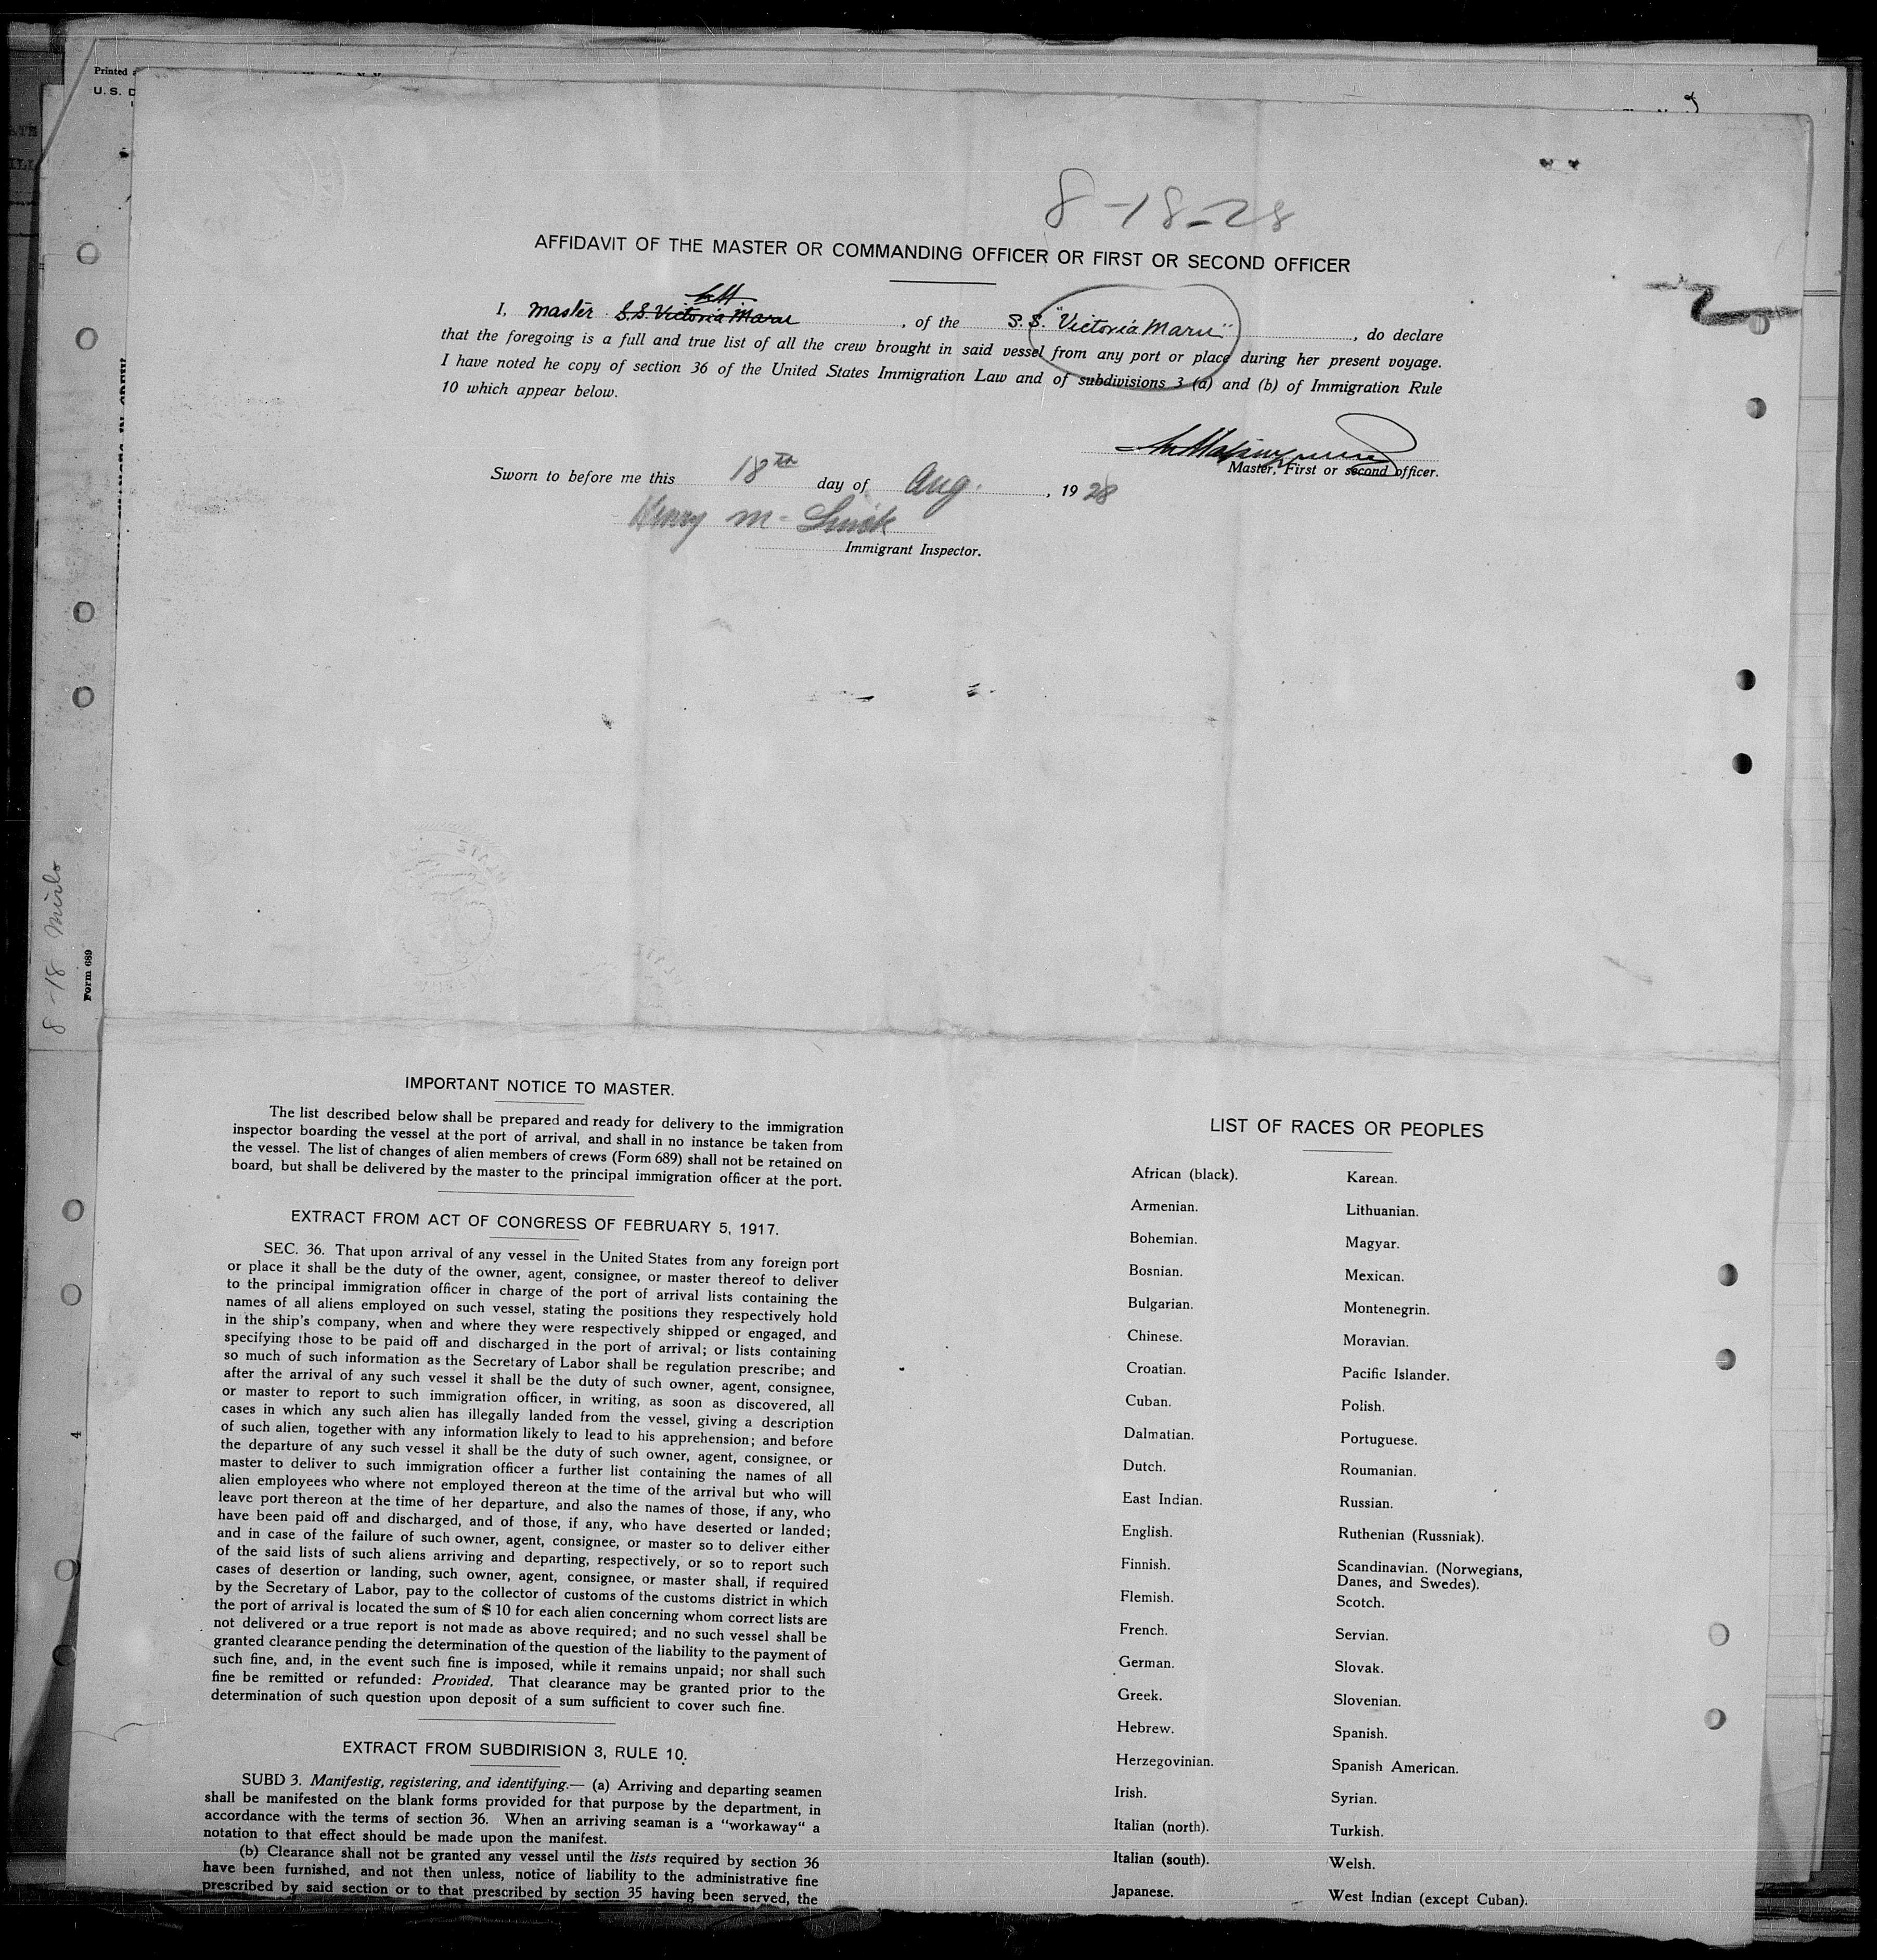 Printed
U. S. D
8-18-28
AFFIDAVIT OF THE MASTER OR COMMANDING OFFICER OR FIRST OR SECOND OFFICER
I, Master S.S. Victoria Maru, of the S.S. "Victoria Maru", do declare
that the foregoing is a full and true list of all the crew brought in said vessel from any port or place during her present voyage.
I have noted he copy of section 36 of the United States Immigration Law and of subdivisions 3 (a) and (b) of Immigration Rule
10 which appear below.
Master, First or second officer.
Sworn to before me this 18th day of Aug., 1928
Henry M.
Immigrant Inspector.
8-18
Form 689
4
IMPORTANT NOTICE TO MASTER.
The list described below shall be prepared and ready for delivery to the immigration
inspector boarding the vessel at the port of arrival, and shall in no instance be taken from
the vessel. The list of changes of alien members of crews (Form 689) shall not be retained on
board, but shall be delivered by the master to the principal immigration officer at the port.
EXTRACT FROM ACT OF CONGRESS OF FEBRUARY 5, 1917.
SEC. 36. That upon arrival of any vessel in the United States from any foreign port
or place it shall be the duty of the owner, agent, consignee, or master thereof to deliver
to the principal immigration officer in charge of the port of arrival lists containing the
names of all aliens employed on such vessel, stating the positions they respectively hold
in the ship's company, when and where they were respectively shipped or engaged, and
specifying those to be paid off and discharged in the port of arrival; or lists containing
so much of such information as the Secretary of Labor shall be regulation prescribe; and
after the arrival of any such vessel it shall be the duty of such owner, agent, consignee,
or master to report to such immigration officer, in writing, as soon as discovered, all
cases in which any such alien has illegally landed from the vessel, giving a description
of such alien, together with any information likely to lead to his apprehension; and before
the departure of any such vessel it shall be the duty of such owner, agent, consignee, or
master to deliver to such immigration officer a further list containing the names of all
alien employees who where not employed thereon at the time of the arrival but who will
leave port thereon at the time of her departure, and also the names of those, if any, who
have been paid off and discharged, and of those, if any, who have deserted or landed;
and in case of the failure of such owner, agent, consignee, or master so to deliver either
of the said lists of such aliens arriving and departing, respectively, or so to report such
cases of desertion or landing, such owner, agent, consignee, or master shall, if required
by the Secretary of Labor, pay to the collector of customs of the customs district in which
the port of arrival is located the sum of $ 10 for each alien concerning whom correct lists are
not delivered or a true report is not made as above required; and no such vessel shall be
granted clearance pending the determination of the question of the liability to the payment of
such fine, and, in the event such fine is imposed, while it remains unpaid; nor shall such
fine be remitted or refunded: Provided, That clearance may be granted prior to the
determination of such question upon deposit of a sum sufficient to cover such fine.
EXTRACT FROM SUBDIRISION 3, RULE 10.
SUBD 3. Manifestig, registering, and identifying.— (a) Arriving and departing seamen
shall be manifested on the blank forms provided for that purpose by the department, in
accordance with the terms of section 36. When an arriving seaman is a "workaway" a
notation to that effect should be made upon the manifest.
(b) Clearance shall not be granted any vessel until the lists required by section 36
have been furnished, and not then unless, notice of liability to the administrative fine
prescribed by said section or to that prescribed by section 35 having been served, the
LIST OF RACES OR PEOPLES
African (black).
Armenian.
Bohemian.
Bosnian.
Bulgarian.
Chinese.
Croatian.
Cuban.
Dalmatian.
Dutch.
East Indian.
English.
Finnish.
Flemish.
French.
German.
Greek.
Hebrew.
Herzegovinian.
Irish.
Italian (north).
Italian (south).
Japanese.
Karean.
Lithuanian.
Magyar.
Mexican.
Montenegrin.
Moravian.
Pacific Islander.
Polish.
Portuguese.
Roumanian.
Russian.
Ruthenian (Russniak).
Scandinavian. (Norwegians,
Danes, and Swedes).
Scotch.
Servian.
Slovak.
Slovenian.
Spanish.
Spanish American.
Syrian.
Turkish.
Welsh.
West Indian (except Cuban).